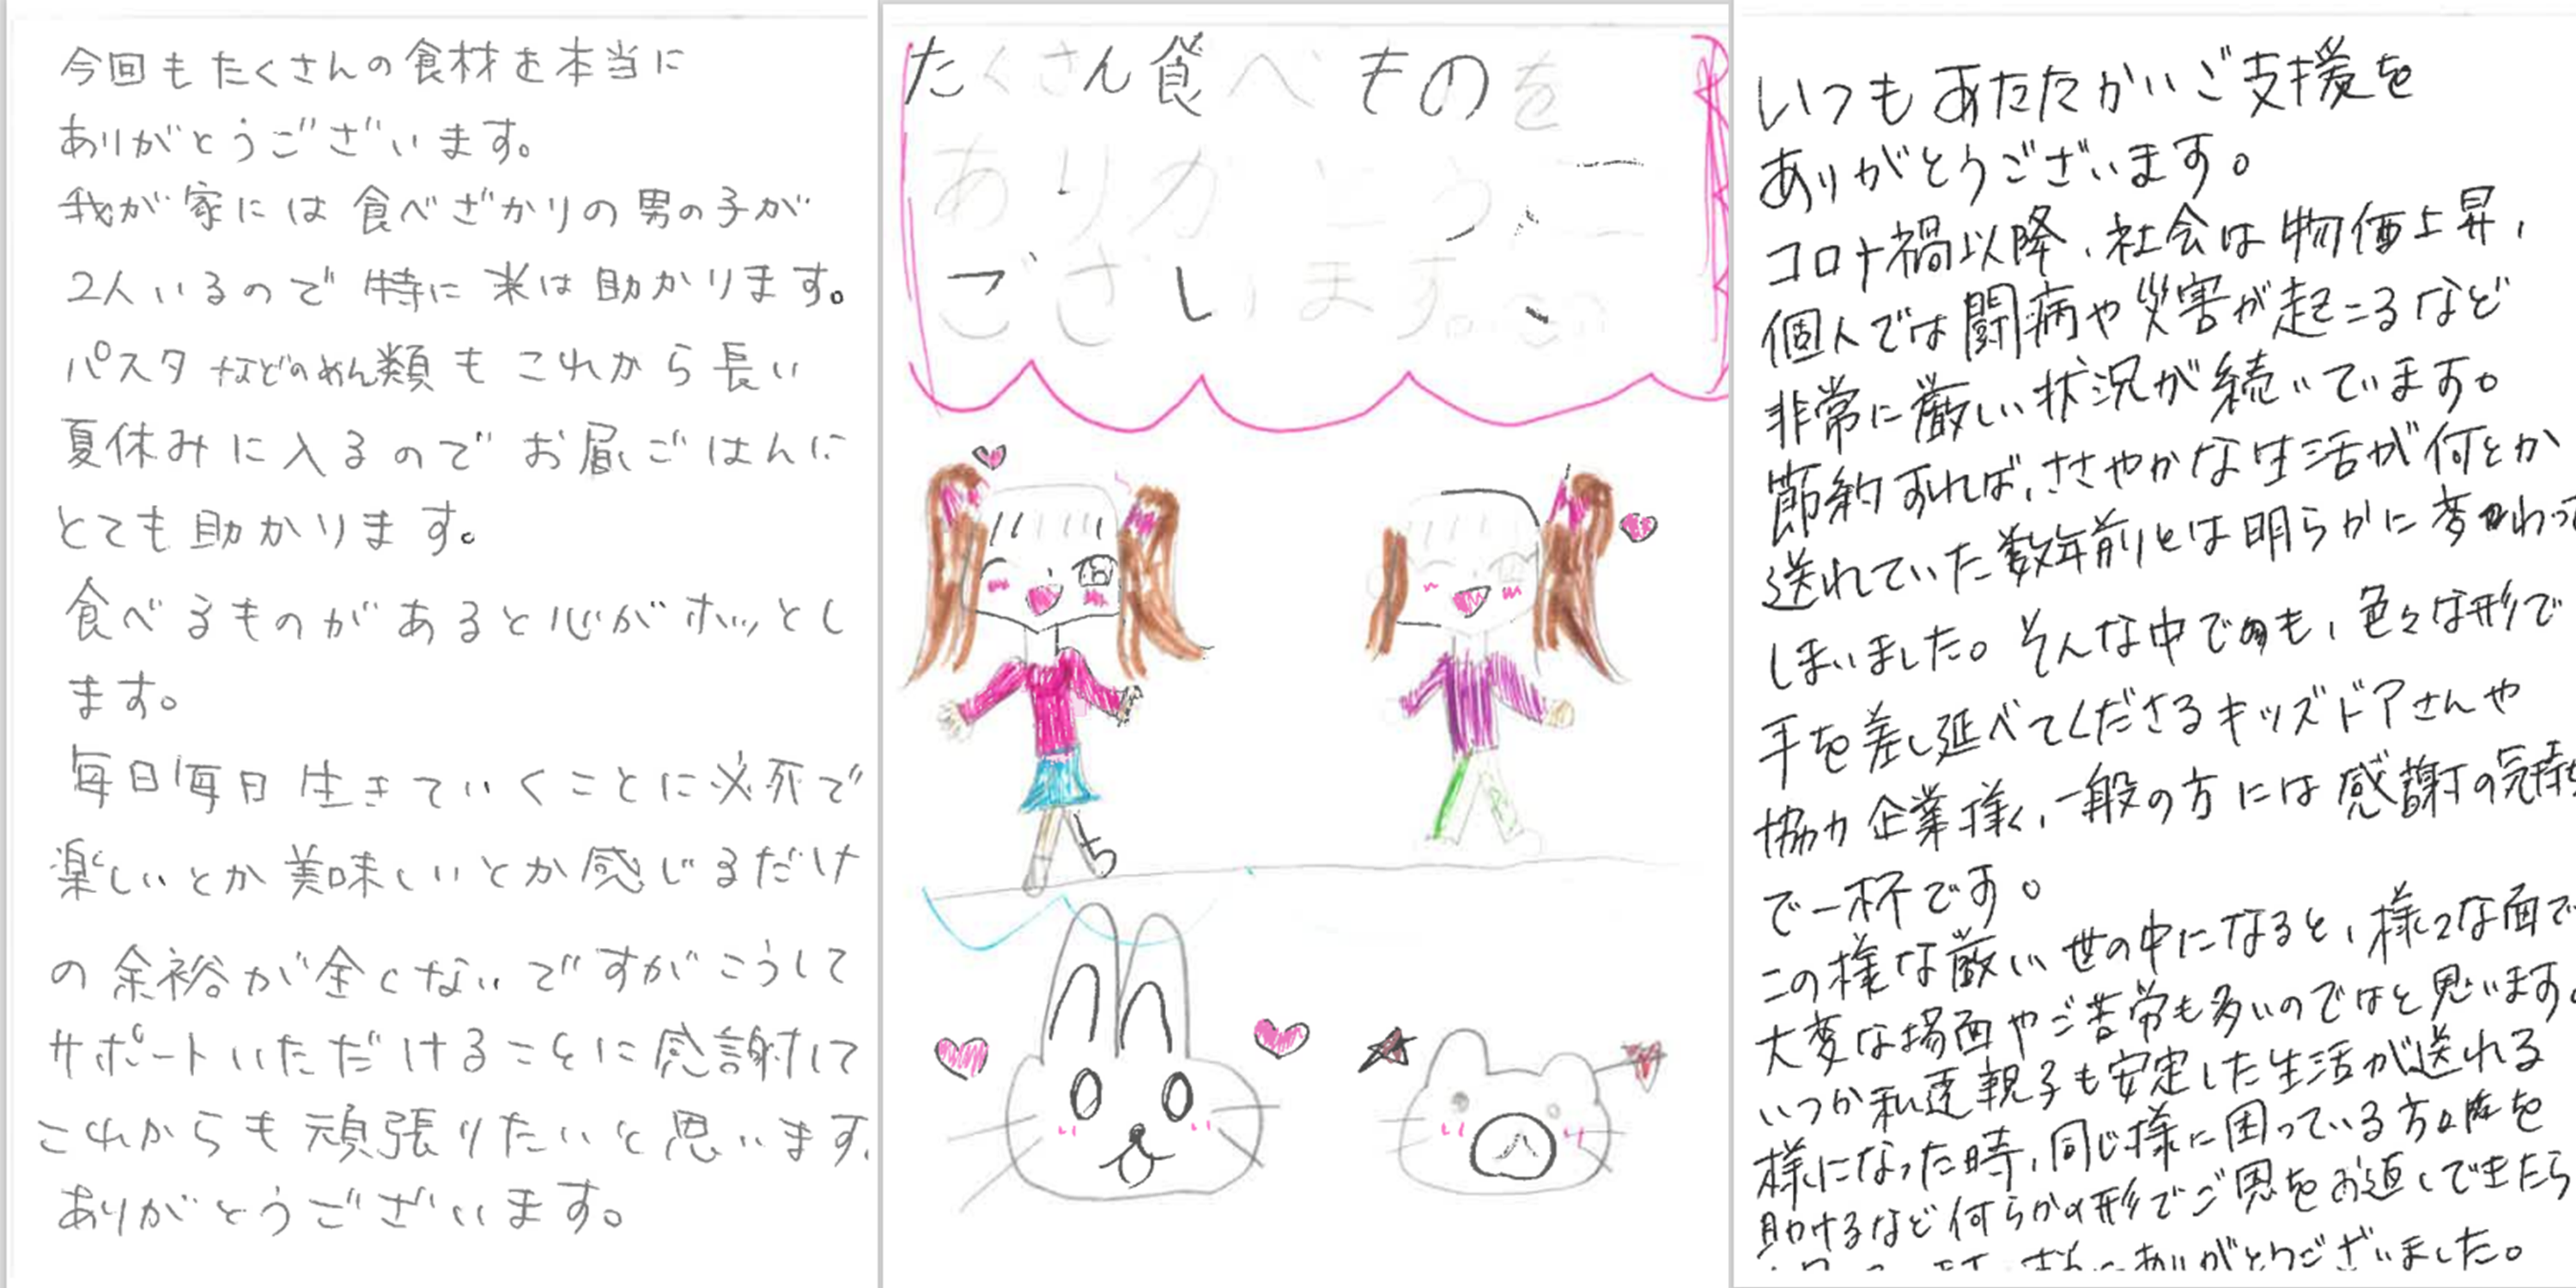 今回もたくさんの食材を本当に
ありがとうございます。
我が家には食べざかりの男の子が
2人いるので特に米は助かります。
パスタなどのめん類もこれから長い
夏休みに入るのでお昼ごはんに
とても助かります。
食べるものがあると心がホッとし
ます。
毎日毎日生きていくことに必死で
楽しいとか美味しいとか感じるだけ
の余裕が全くないですがこうして
サポートいただけることに感謝して
これからも頑張りたいと思います。
ありがとうございます。
たくさん食べものを
ありがとうご
ございます。
いつもあたたかいご支援を
ありがとうございます。
コロナ禍以降、社会は物価上昇、
個人では闘病や災害が起こるなど
非常に厳しい状況が続いています。
節約すれば、ささやかな生活が何とか
送れていた数年前とは明らかに変わって
しまいました。そんな中でも、色々な形で
手を差し延べてくださるキッズドアさんや
協力企業様、一般の方には感謝の気持ち
で一杯です。
この様な厳しい世の中になると、様々な面で
大変な場面やご苦労も多いのではと思います。
いつか私達親子も安定した生活が送れる
様になった時、同じ様に困っている方々を
助けるなど何らかの形でご恩をお返しできたら
ありがとうございました。